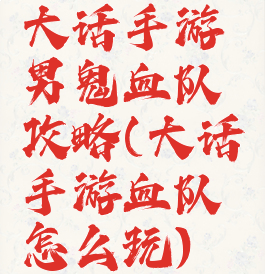 大话手游
男鬼血队
攻略(大话
手游血队
怎么玩)